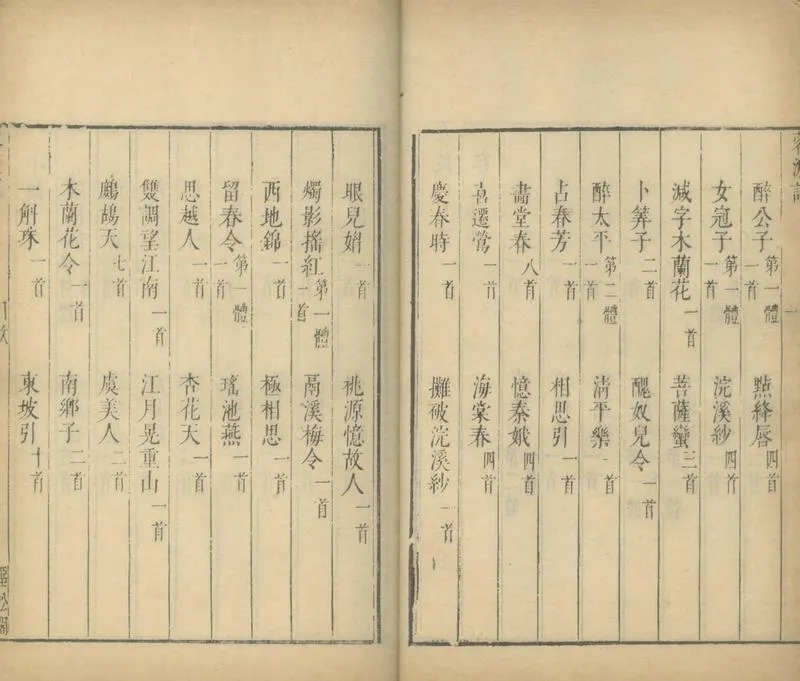 醉公子 第一體 一首 點絳唇 四首
女冠子 第一體 一首 浣溪紗 四首
減字木蘭花 一首 菩薩蠻 三首
卜筭子 二首 醜奴兒令 一首
醉太平 第二體 一首 清平樂 一首
占春芳 一首 相思引 一首
畵堂春 八首 憶秦娥 四首
喜遷鶯 一首 海棠春 四首
慶春時 一首 攤破浣溪紗 一首
眼兒媚 一首 桃源憶故人 一首
燭影搖紅 第一體 一首 鬲溪梅令 一首
西地錦 一首 極相思 一首
留春令 第一體 一首 瑤池燕 一首
思越人 一首 杏花天 一首
雙調望江南 一首 江月晃重山 一首
鷓鴣天 七首 虞美人 二首
木蘭花令 一首 南鄉子 二首
一斛珠 一首 東坡引 十首